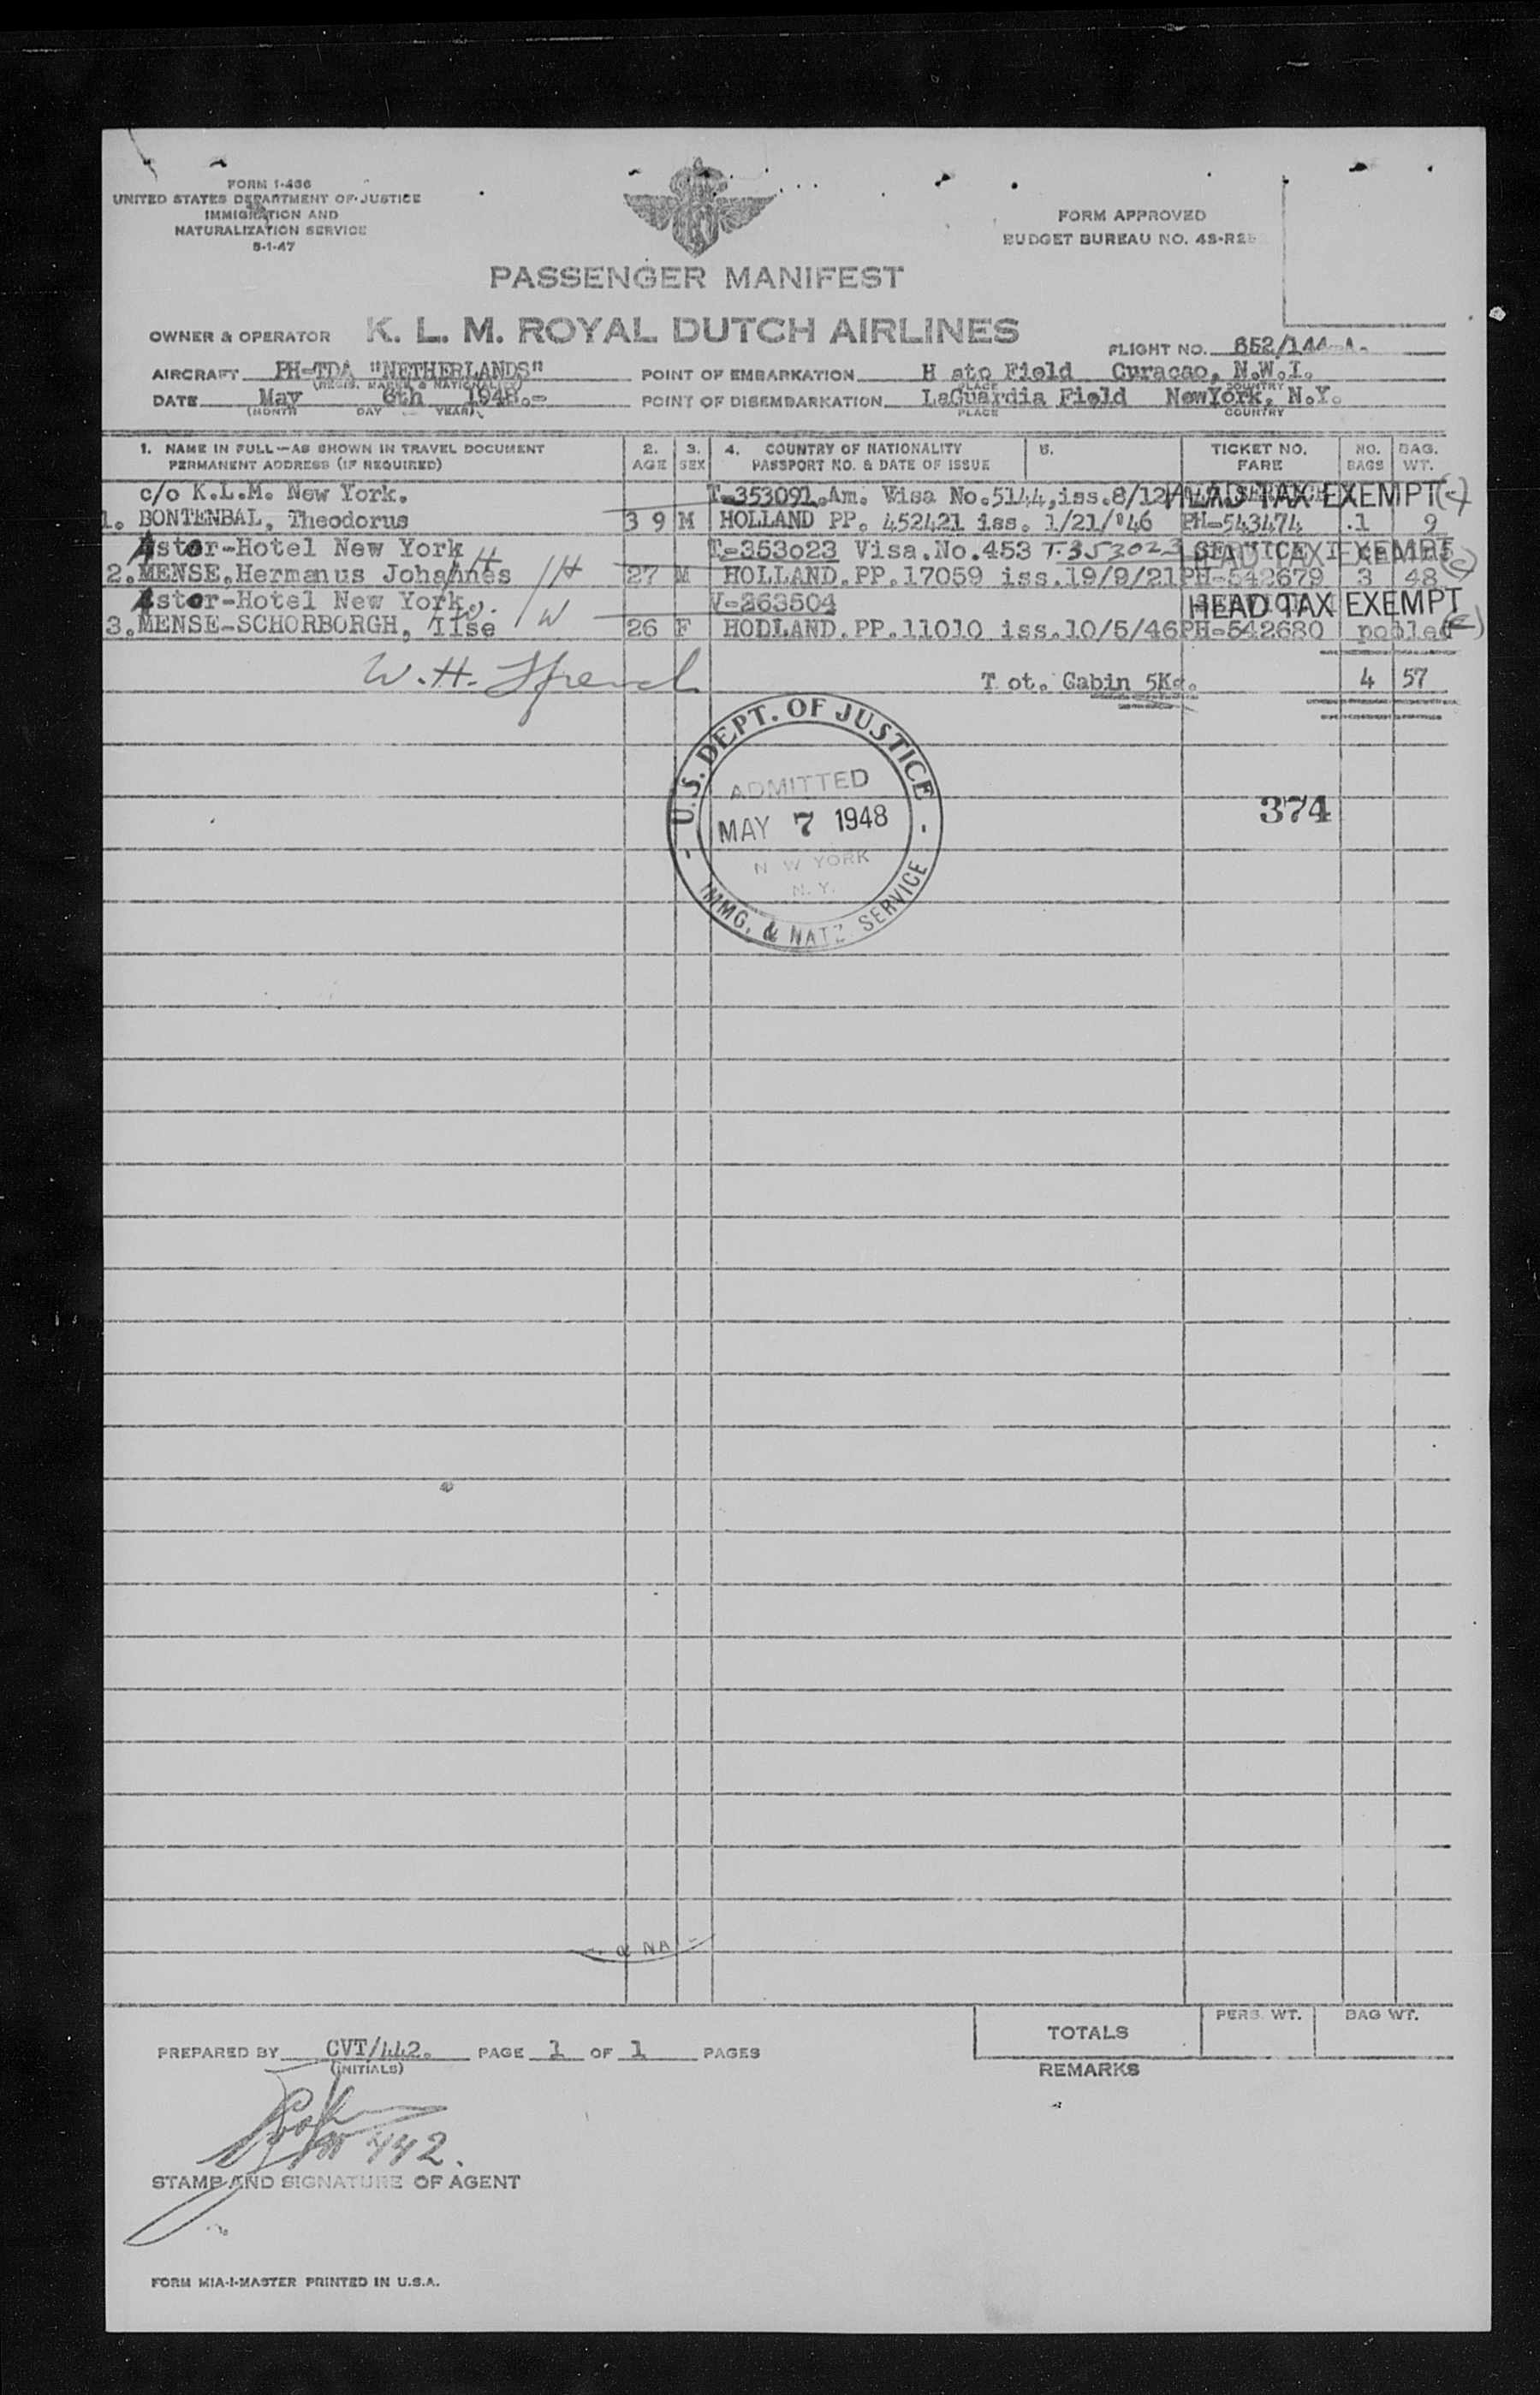 FORM I-466
UNITED STATES DEPARTMENT OF JUSTICE
IMMIGRATION AND
NATURALIZATION SERVICE
5-1-47
FORM APPROVED
BUDGET BUREAU NO. 43-R25
PASSENGER MANIFEST
OWNER & OPERATOR K. L. M. ROYAL DUTCH AIRLINES
FLIGHT NO. 652/144-A.
AIRCRAFT PH-TDA "NETHERLANDS" POINT OF EMBARKATION H ato Field Curacao, N.W.I.
(REGIS. MARKS & NATIONALITY) PLACE COUNTRY
DATE May 6th 1948.- POINT OF DISEMBARKATION LaGuardia Field NewYork, N.Y.
(MONTH DAY YEAR) PLACE COUNTRY
1. NAME IN FULL—AS SHOWN IN TRAVEL DOCUMENT 2. 3. 4. COUNTRY OF NATIONALITY 5. TICKET NO. NO. BAG.
PERMANENT ADDRESS (IF REQUIRED) AGE SEX PASSPORT NO. & DATE OF ISSUE FARE BAGS WT.
c/o K.L.M. New York. T-353091.Am. Visa No.5144,iss.8/12 HEAD TAX EXEMPT (c)
1. BONTENBAL, Theodorus 3 9 M HOLLAND PP. 452421 iss. 1/21/'46 PH-543474 .1 9
Astor-Hotel New York T-353023 Visa.No.453 T-353023 HEAD TAX EXEMPT (c)
2.MENSE.Hermanus Johannes /H 27 M HOLLAND.PP.17059 iss.19/9/21 PH-542679 3 48
Astor-Hotel New York,. V-263504 HEAD TAX EXEMPT
3.MENSE-SCHORBORGH, Ilse /W 26 F HODLAND.PP.11010 iss.10/5/46 PH-542680 pooled (c)
W. H. T ot. Cabin 5Kg. 4 57
U.S. DEPT. OF JUSTICE
ADMITTED
MAY 7 1948
N W YORK
N. Y.
IMMG. & NATZ SERVICE
374
& NA
PERS. WT. BAG WT.
TOTALS
PREPARED BY CVT/442. PAGE 1 OF 1 PAGES
(INITIALS)
REMARKS
442.
STAMP AND SIGNATURE OF AGENT
FORM MIA-I-MASTER PRINTED IN U.S.A.